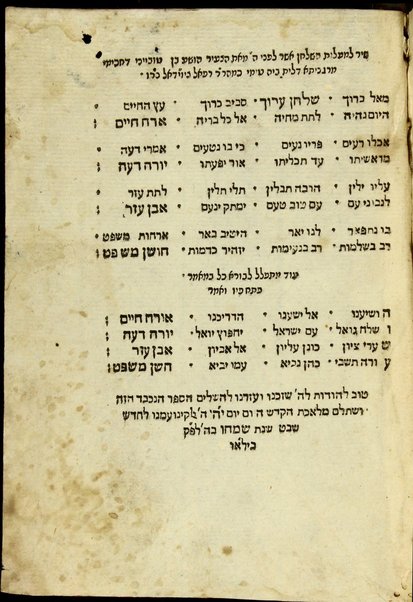 שיר למעלות השלחן אשר לפני ה' מאת הצעיר הושע בן טוביי׳ דחכימי
מאל ברוך שלחן ערוך סביב כרוך עץ החיים
היום נהיה לתת מחיה אל כל בריה ארח חיים
אכלו רעים פריו נעים כי בו נטעים אמרי דעה
מראשיתו עד תכליתו אור יפעתו יורה דעה
עליו ילין הורבה תבלין תלי תלין לתת עזר
לנבוני עם עם טוב טעם ימתק ינעם אבן עזר
בו נחפצר לנו יאר היטיב באר ארחות משפט
רב בשלמות רב בנעימות יזהיר כדמות חושן משפט
עוד מתפלל לבורא כל במאמר
פתח פיו ואמר
ה ושיענו אל ישענו הדריכנו אורח חיים
ו שלח גואל עם ישראל יחפוץ יואל יורה דעה
ש עדי ציון כונן עליון אל אביון אבן עזר
ע ורה תשבי כהן נביא עמו יביא חשן משפט
טוב להודות לה' שזכנו ועזרנו להשלים הספר הנכבד הזה
ושתלם מלאכת הקדש היום יום
שבט שנת שמחו בה' לפק